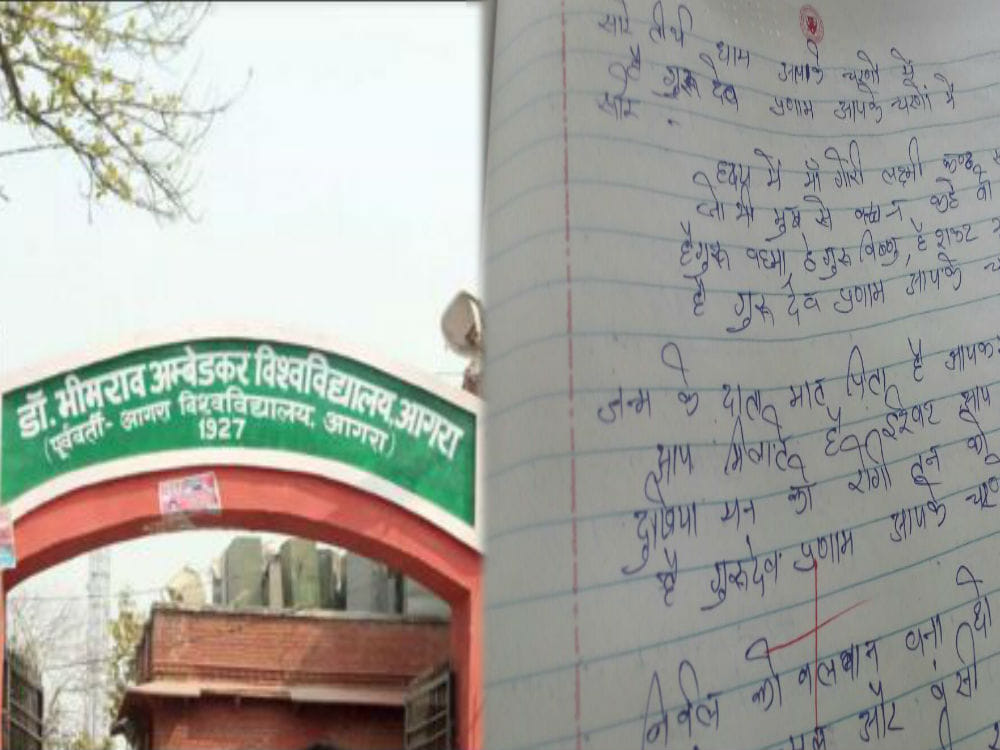 डॉ. भीमराव अम्बेडकर विश्वविद्यालय, आगरा
(पूर्ववर्ती- आगरा विश्वविद्यालय, आगरा)
1927
सारे तीर्थ धाम आपके चरणो में
है गुरु देव प्रणाम आपके चरणों में
हृदय में माँ गौरी लक्ष्मी
जो भी मुख से वचन कहे
हे गुरु ब्रह्मा, हे गुरु विष्णु, हे शंकर
है गुरु देव प्रणाम आपके
जन्म के दाता मात पिता है आपके
आप मिलाते है ईश्वर आप
दुखिया मन को रोगी तन को
है गुरुदेव प्रणाम आपके
निर्बल को बलवान बना दो
और